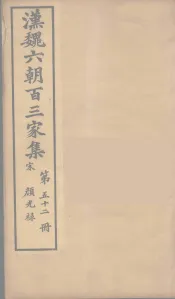 漢魏六朝百三家集
宋
顏光祿
第五十二冊